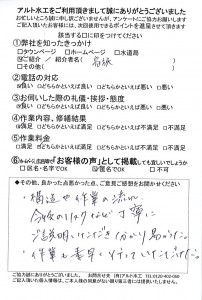 アルト水工をご利用頂きまして誠にありがとうございました
お忙しいところ誠に申し訳ございませんが、アンケートにご協力お願いします
ご記入頂いたお客様には、次回使用できるポイントを進呈させて頂きます
該当する口に印をつけてください
①弊社を知ったきっかけ
□タウンページ □ホームページ □水道局
☑ご紹介 / 紹介者名( 看板 )
□その他( )
②電話の対応
☑良い □どちらかといえば良い □どちらかといえば悪い □悪い
③お伺いした際の礼儀・挨拶・態度
☑良い □どちらかといえば良い □どちらかといえば悪い □悪い
④作業内容、修繕結果
☑満足 □どちらかといえば満足 □どちらかといえば不満足 □不満足
⑤作業料金
☑満足 □どちらかといえば満足 □どちらかといえば不満足 □不満足
「お客様の声」として掲載しても宜しいでしょうか
□匿名・名字でOK ☑匿名でOK □不可
◆その他、良かった点悪かった点、ご意見ご感想をお聞かせください
・構造や作業の流れ、
今後のリスクなど丁寧に
ご説明いただき分かり易かった。
・作業も素早く行っていただけた。
ご協力誠にありがとうございました。 お問合わせ先 (有)アルト水工 TEL.0120-402-060
ご記入頂いた個人情報は、ご本人様の同意がない限り第三者には提供いたしません